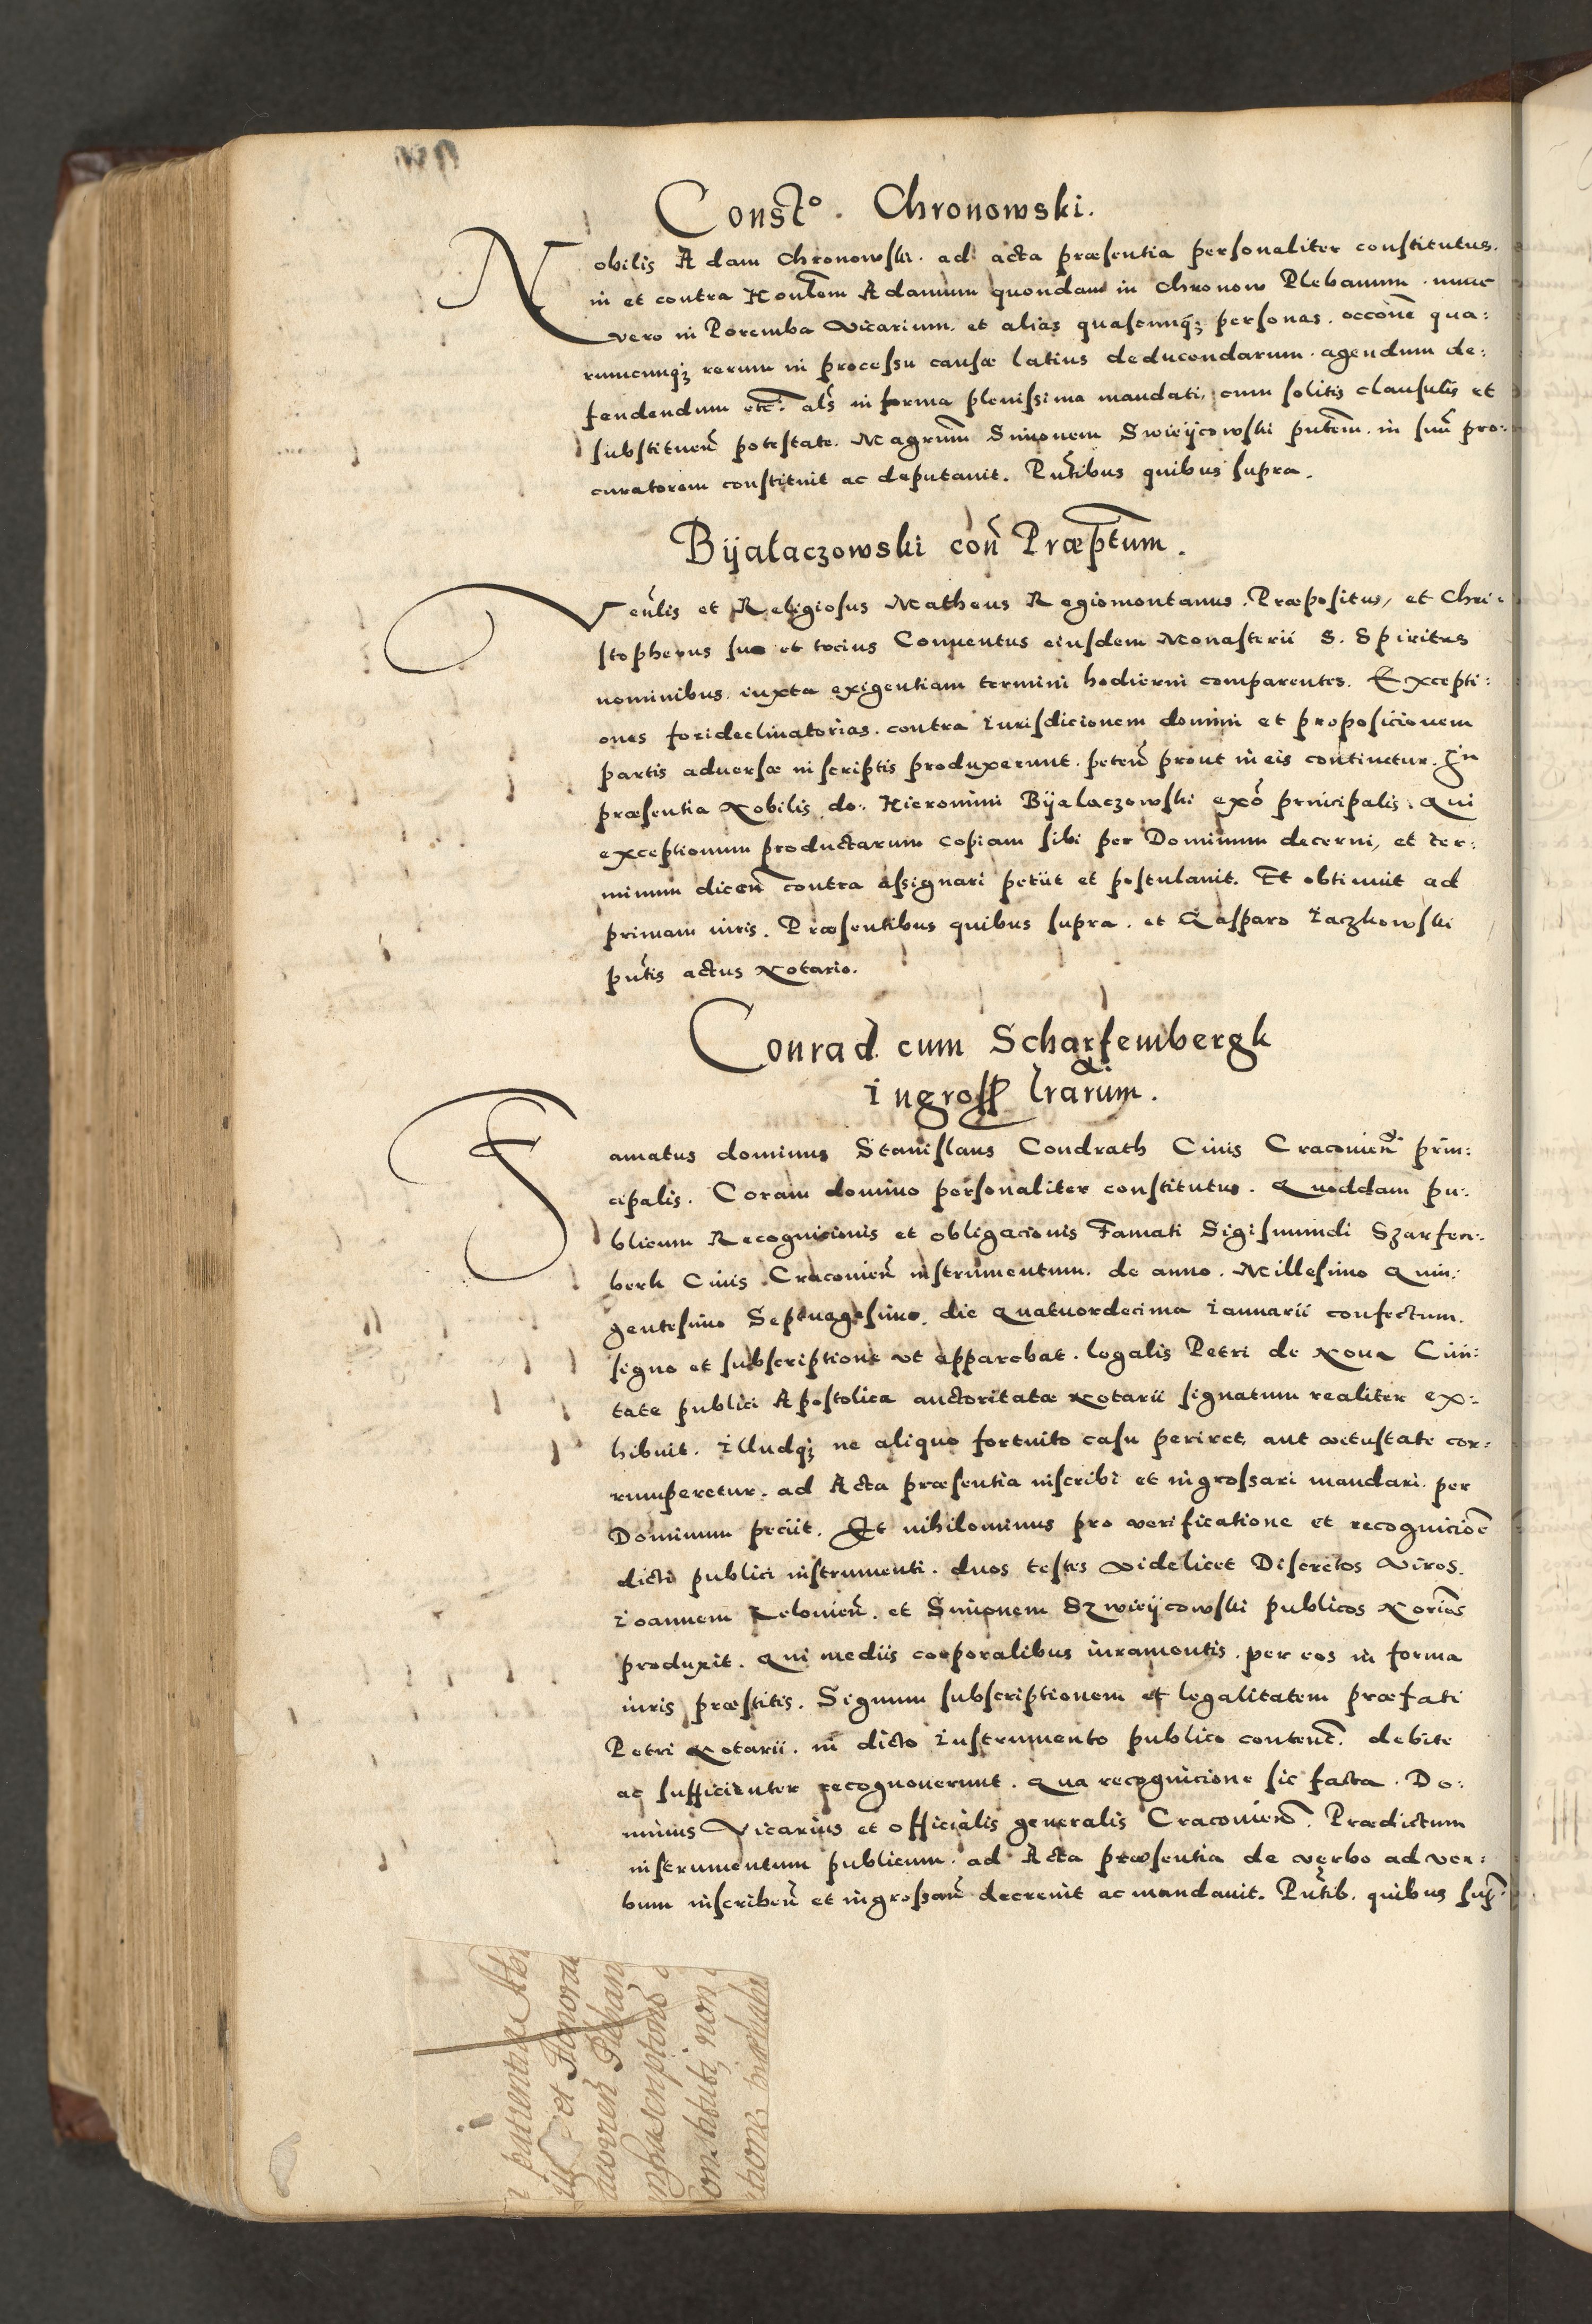 Constᵒ. Chronowski.
Nobilis Adam Chronowski. ad acta præsentia personaliter constitutus.
in et contra Honlem Adamum quondam in Chronow Plebanum. nunc
vero in Poremba Vicarium. et alias quascunqꝫ personas. occone qua:
rumcunqꝫ rerum in processu causæ latius deducendarum. agendum de:
fendendum etc: als in forma plenissima mandati, cum solitis clausulis et
substituen potestate. Magrum Simonem Swieijcowski pntem. in suu pro:
curatorem constituit ac deputauit. Pntibus quibus supra.
Bijalaczowski con Præptum.
Venlis et Religiosus Matheus Regiomontanus. Præpositus, et Chri:
stopherus suo et tocius Conuentus eiusdem Monasterii S. Spiritus
nominibus iuxta exigentiam termini hodierni comparentes. Excepti:
ones forideclinatorias. contra Iurisdicionem domini et proposicionem
partis aduersæ in scriptis produxerunt. peten prout in eis continetur. In
præsentia Nobilis do: Hieronimi Bijalaczowski exo principalis. Qui
exceptionum productarum copiam sibi per Dominum decerni, et ter:
minum dicen contra assignari petiit et postulauit. Et obtinuit ad
primam iuris. Præsentibus quibus supra. et Gasparo Iaczkowski
pntis actus Notario.
Conrad cum Scharfembergk
Ingross lrarum.
Famatus dominus Stanislaus Condrath Ciuis Cracouien prin:
cipalis. Coram domino personaliter constitutus. Quoddam pu:
blicum Recognicionis et obligacionis Famati Sigismundi Szarfen:
berk Ciuis Cracouien instrumentum. de anno. Millesimo Quin:
gentesimo Septuagesimo. die Quatuordecima Ianuarii confectum.
signo et subscriptione vt apparebat. legalis Petri de Noua Ciui:
tate publici Apostolica auctoritatæ Notarii signatum realiter ex:
hibuit. Illudqꝫ ne aliquo fortuito casu periret, aut vetustate cor:
rumperetur. ad Acta præsentia inscribi et ingrossari mandari per
Dominum peciit. Et nihilominus pro verificatione et recognicioe
dicti publici instrumenti. duos testes videlicet Discretos Viros.
Ioannem Relouien. et Simonem Szwieijcowski publicos Norios
produxit. Qui mediis corporalibus iuramentis. per eos in forma
iuris præstitis. Signum subscriptionem et legalitatem præfati
Petri Notarii. in dicto Instrumento publico content. debite
ac sufficienter recognouerunt. Qua recognicione sic facta. Do:
minus Vicarius et officialis generalis Cracouien. Prædictum
instrumentum publicum. ad Acta præsentia de verbo ad ver:
bum inscriben et ingrossan decreuit ac mandauit. Pntib. quibus sup:
et Honora
Pleban